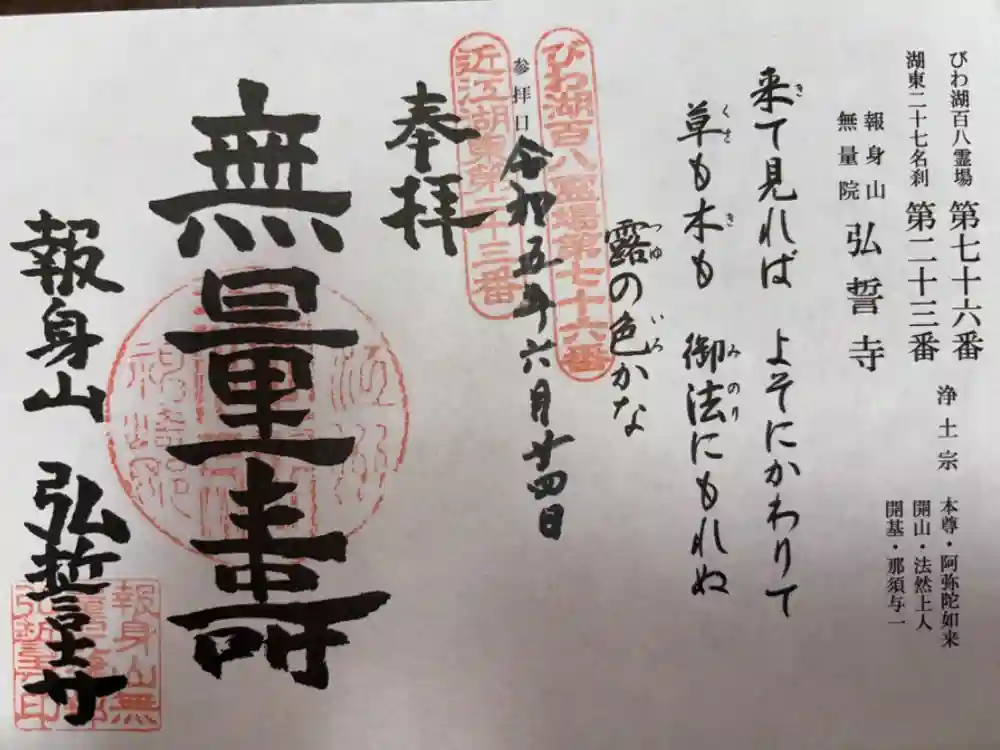 びわ湖百八霊場 第七十六番 浄土宗 本尊・阿弥陀如来
湖東二十七名刹 第二十三番 開山・法然上人
開基・那須与一
報身山
無量院 弘誓寺
来て見れば よそにかわりて
草も木も 御法にもれぬ
露の色かな
びわ湖百八霊場第七十六番
参拝日 令和五年六月廿四日
近江湖東第二十三番
奉拝
無量寿
報身山 弘誓寺